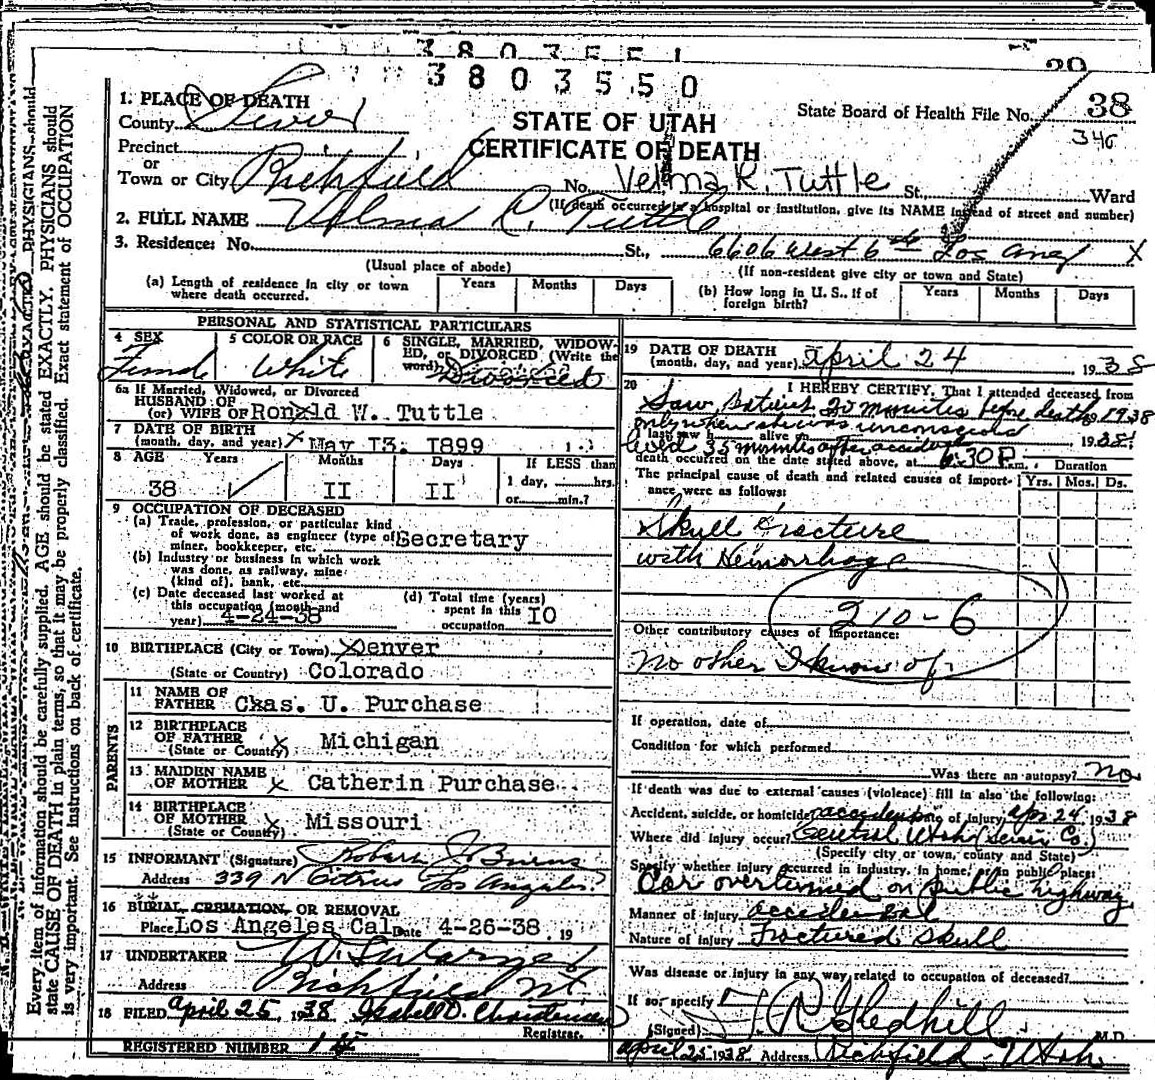 3803551
3803550
39
38
346
State Board of Health File No.
STATE OF UTAH
CERTIFICATE OF DEATH
1. PLACE OF DEATH
County Sevier
Precinct
or
Town or City Richfield No. Velma R. Tuttle St., Ward
(If death occurred in a hospital or institution, give its NAME instead of street and number)
2. FULL NAME Velma C. Tuttle
3. Residence: No. St., 6606 West 6th Los Ang X
(Usual place of abode) (If non-resident give city or town and State)
(a) Length of residence in city or town where death occurred. Years Months Days
(b) How long in U. S., if of foreign birth? Years Months Days
PERSONAL AND STATISTICAL PARTICULARS
4 SEX Female
5 COLOR OR RACE White
6 SINGLE, MARRIED, WIDOWED, or DIVORCED (Write the word) Divorced
6a If Married, Widowed, or Divorced
HUSBAND OF
(or) WIFE OF Ronald W. Tuttle
7 DATE OF BIRTH
(month, day, and year) X May I3. I899
8 AGE Years Months Days If LESS than
38 II II 1 day, hrs.
or min.?
9 OCCUPATION OF DECEASED
(a) Trade, profession, or particular kind
of work done, as engineer (type of
miner, bookkeeper, etc. Secretary
(b) Industry or business in which work
was done, as railway, mine
(kind of), bank, etc.
(c) Date deceased last worked at
this occupation (month and
year) 4-24-38
(d) Total time (years)
spent in this
occupation I0
10 BIRTHPLACE (City or Town) Denver
(State or Country) Colorado
PARENTS
11 NAME OF
FATHER Chas. U. Purchase
12 BIRTHPLACE
OF FATHER X Michigan
(State or Country)
13 MAIDEN NAME
OF MOTHER X Catherin Purchase
14 BIRTHPLACE
OF MOTHER X Missouri
(State or Country)
15 INFORMANT (Signature) Robert J. Burns
Address 339 N Citrus Los Angeles
16 BURIAL, CREMATION, OR REMOVAL
Place Los Angeles Cal Date 4-26-38 19
17 UNDERTAKER
Address Richfield Ut.
18 FILED April 25, 1938 Isabell D. Christensen
Registrar.
REGISTERED NUMBER
19 DATE OF DEATH
(month, day, and year) April 24 1938
20 I HEREBY CERTIFY, That I attended deceased from
Saw patient 20 minutes before death, 1938
only when she was unconscious
I last saw h alive on , 1938
lived 35 minutes after accident
death occurred on the date stated above, at 6:30 P. m. Duration
The principal cause of death and related causes of importance were as follows: Yrs. Mos. Ds.
Skull Fracture
with Hemorrhage
210-6
Other contributory causes of importance:
no other I know of
If operation, date of
Condition for which performed
Was there an autopsy? no
If death was due to external causes (violence) fill in also the following:
Accident, suicide, or homicide accident Date of injury Apr 24, 1938
Where did injury occur? Central Utah (Sevier Co.)
(Specify city or town, county and State)
Specify whether injury occurred in industry, in home, or in public place:
Car overturned on public highway
Manner of injury accidental
Nature of injury Fractured Skull
Was disease or injury in any way related to occupation of deceased?
If so, specify
(Signed) Gledhill M.D.
April 25 1938 Address Richfield - Utah
Every item of information should be carefully supplied. AGE should be stated EXACTLY. PHYSICIANS should
state CAUSE OF DEATH in plain terms, so that it may be properly classified. Exact statement of OCCUPATION
is very important. See instructions on back of certificate.